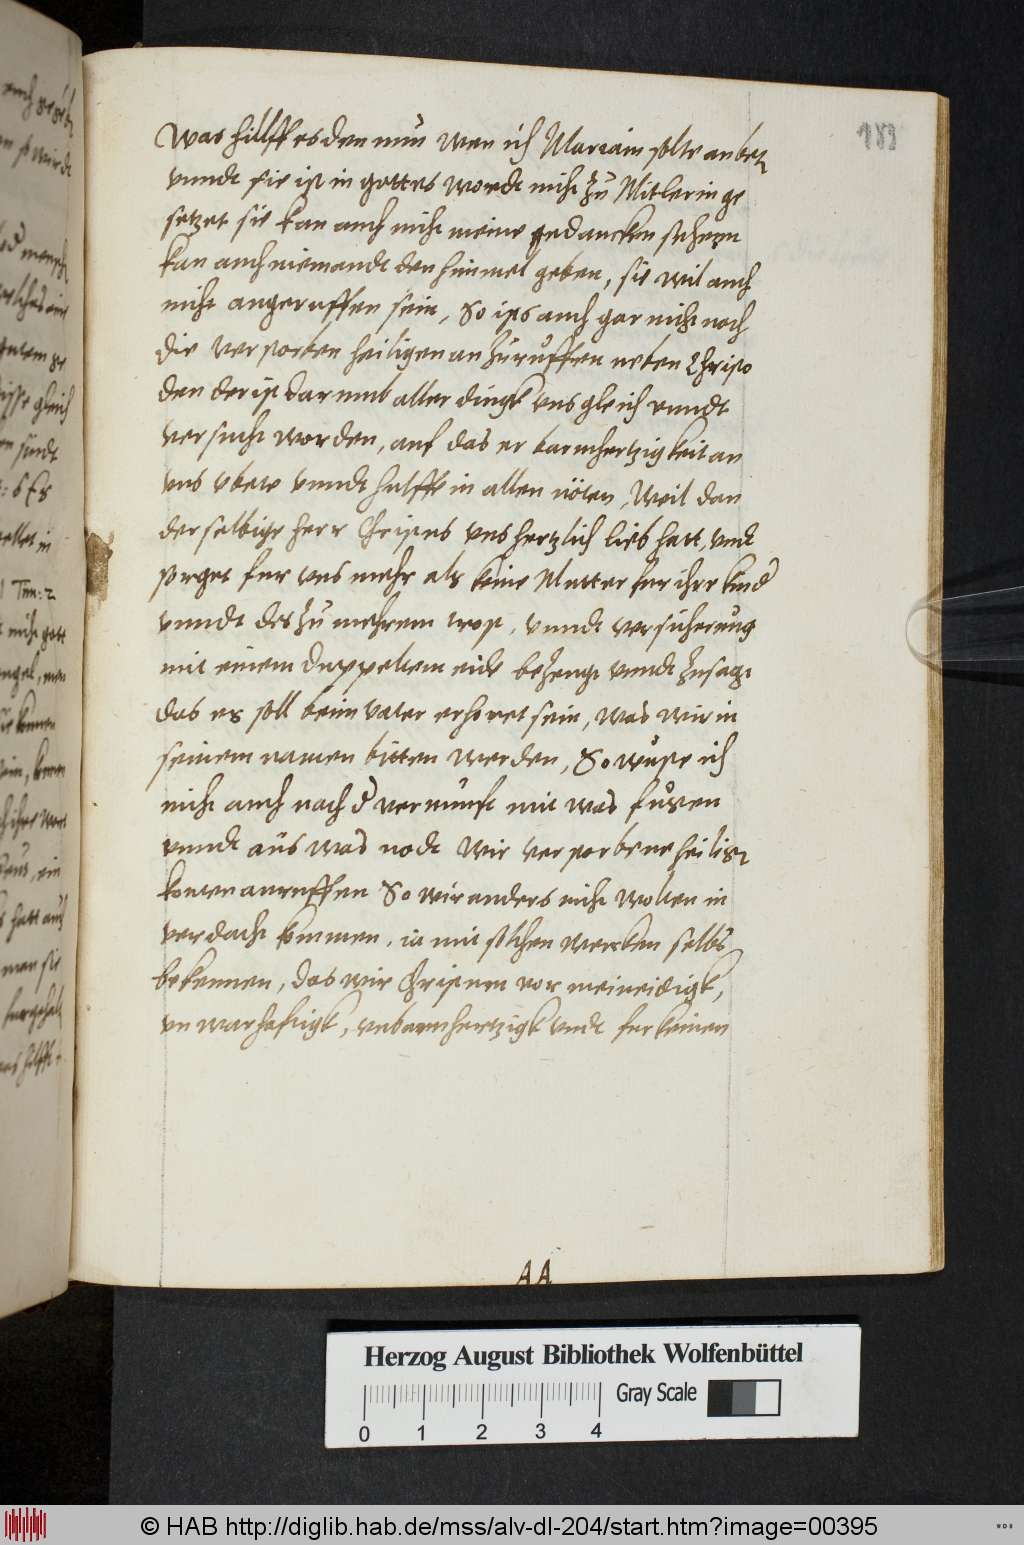 189
Was hillfft es den nun wen ich Mariam solte anbetē
vnndt sie ist in gottes wordt nicht zu Mitlerin ge
setzet sie kan auch nicht meine gedancken sehenn
kan auch niemandt den himmel geben, sie wil auch
nicht angeruffen sein, So ists auch gar nicht noch
die verstorben heiligen anzuruffen neben Christo
den der ist darumb aller dingk vns gleich vnndt
versucht worden, auf das er barmhertzigkeit an
vns vbete vnndt hulffe in allen nöten, Weil dan
derselbige herr Christus vns hertzlich lieb hatt, vndt
sorget fur vns mehr als keine Mutter fur ihre kind
vnndt des zu mehrem trost, vnndt versicherung
mit einem duppeltem eide bezeugt vnndt zusagt
das es soll beim vater erhoret sein, was wir in
seinem namen bitten werden, So wuste ich
nicht auch nach d vernunft mit was fuzen
vnndt aus was nodt wir verstorbene heiligē
konten anruffen So wir anders nicht wolten in
verdacht kommen, ia mit solchen wercken selbs
bekennen, das wir Christum vor meineidigk,
vnwarhafftigk, vnbarmhertzigk vndt fur keinen
AA
Herzog August Bibliothek Wolfenbüttel
Gray Scale
0 1 2 3 4
© HAB http://diglib.hab.de/mss/alv-dl-204/start.htm?image=00395